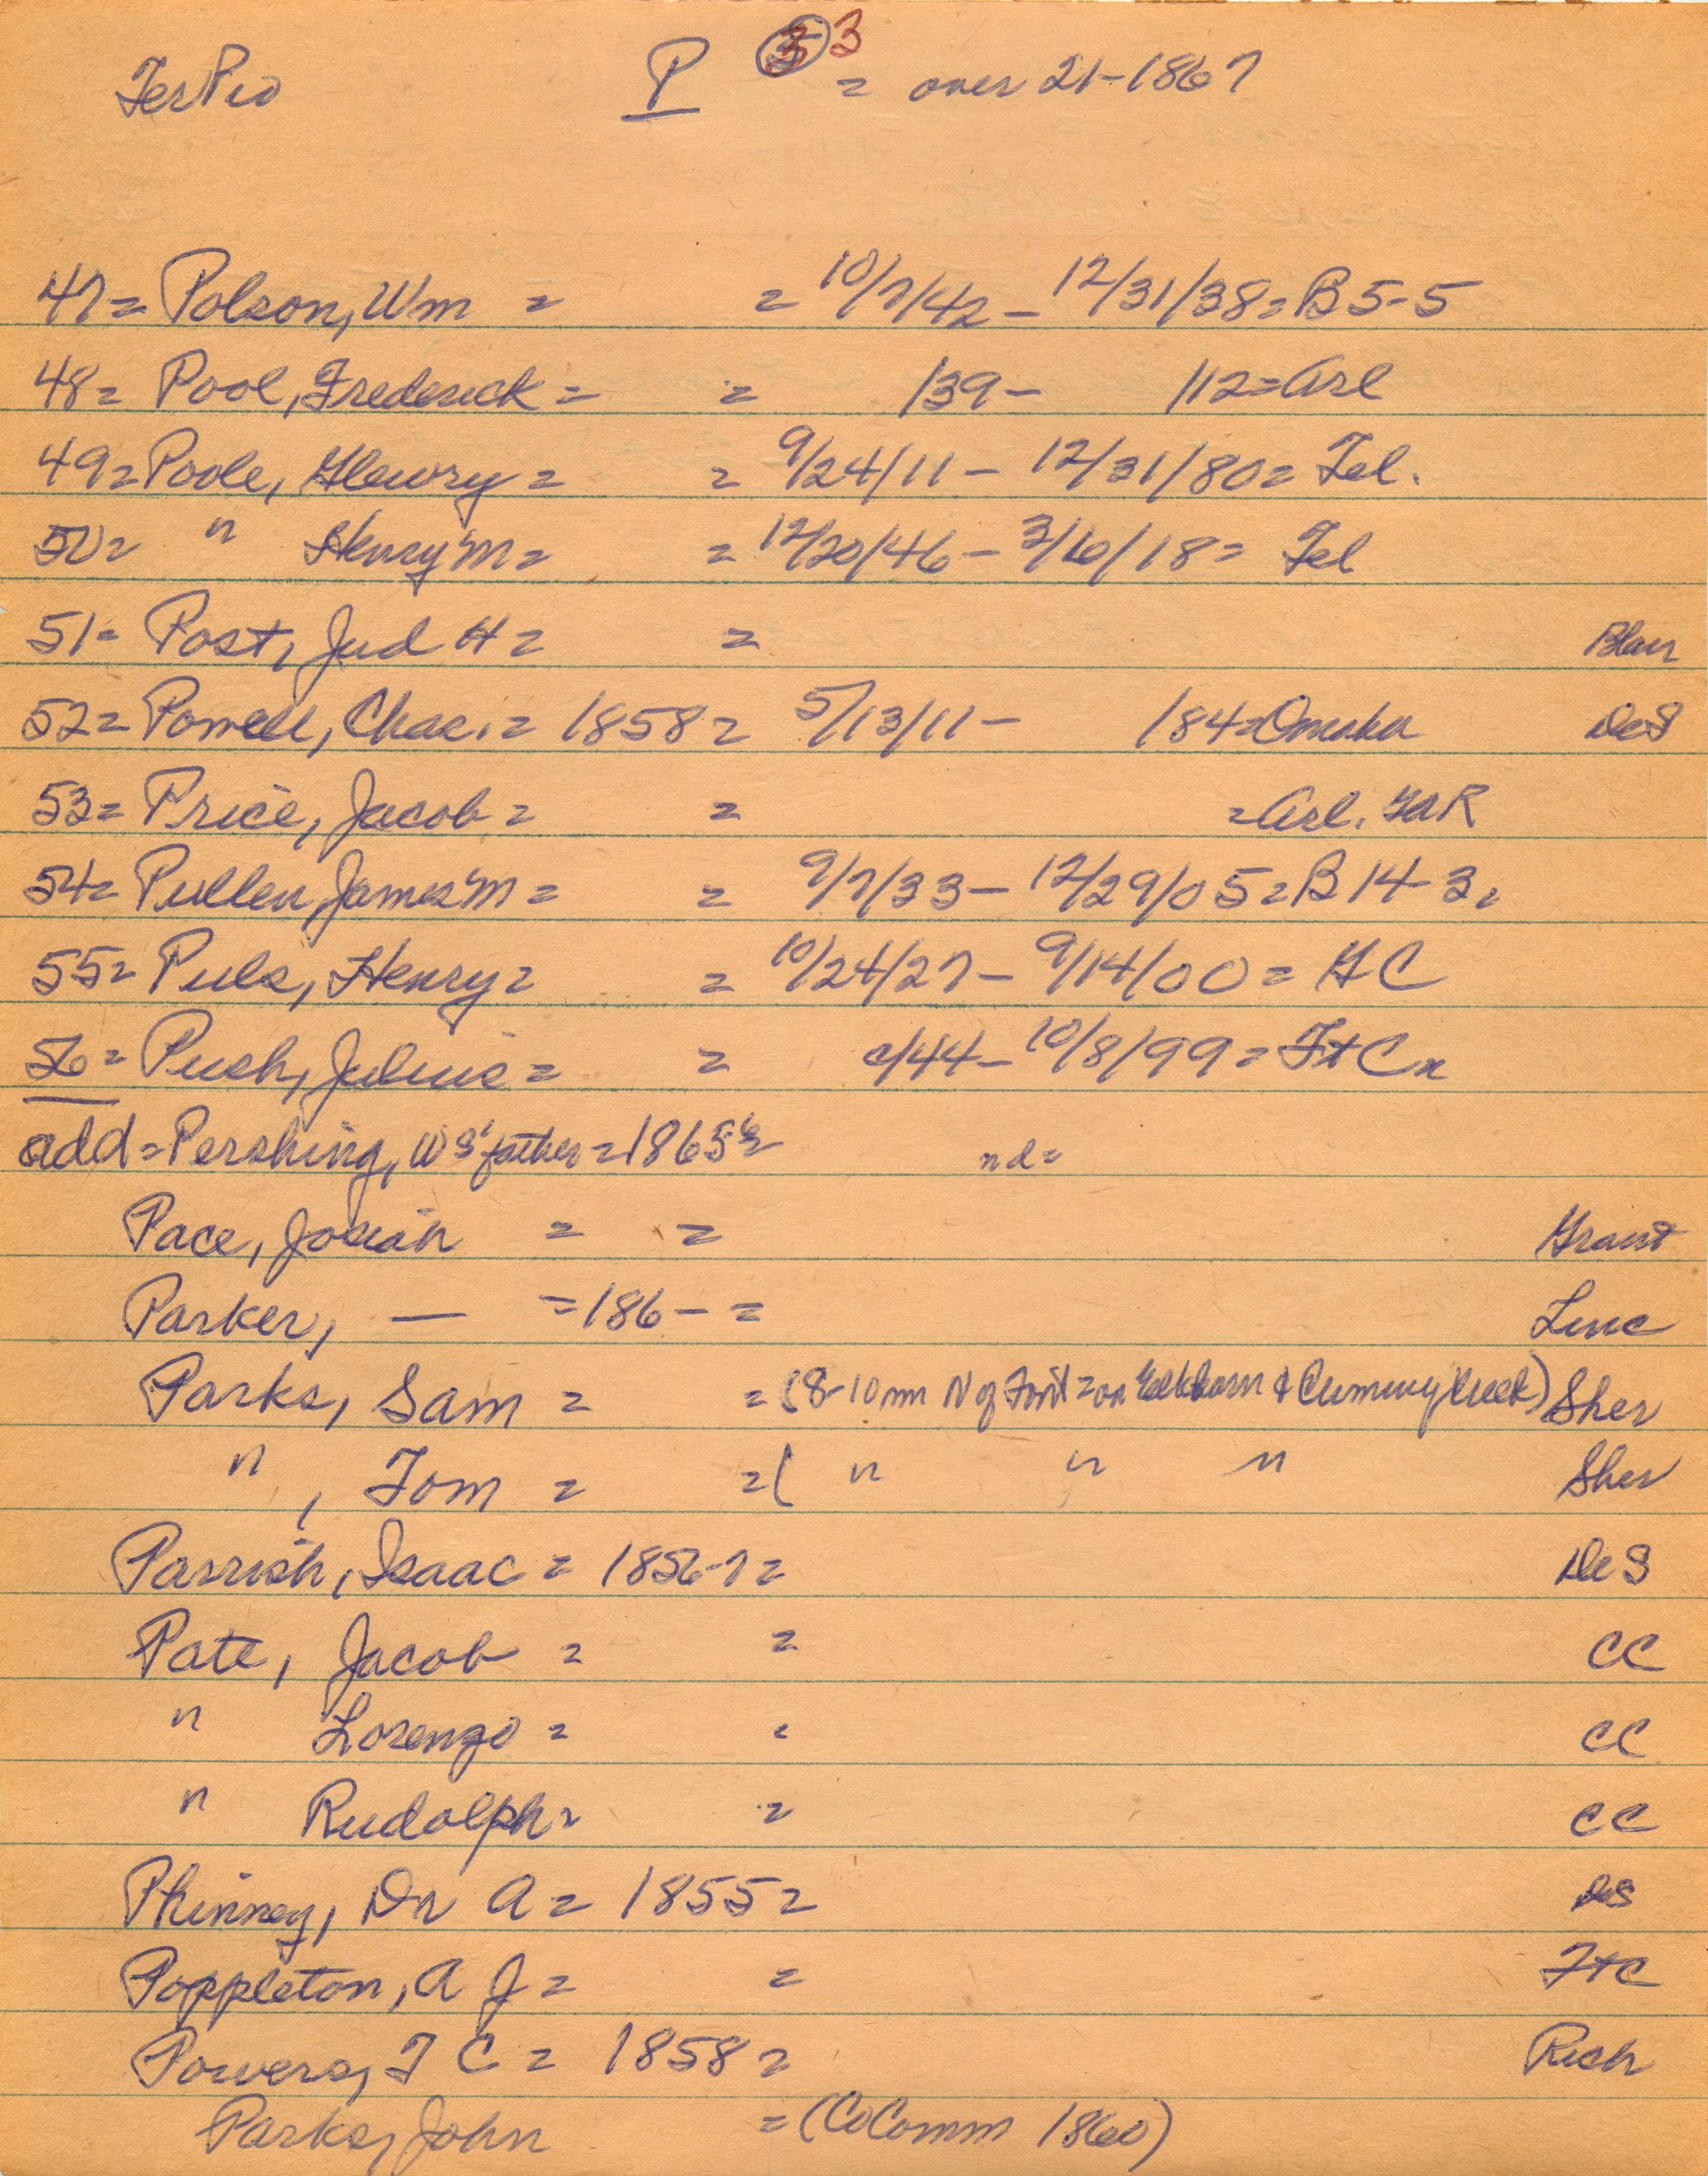 TerPio P 3 = over 21-1867
47= Polson, Wm = = 10/7/42 - 12/31/38= B5-5
48= Pool, Frederick = = /39- /12=Arl
49=Poole, Henry = = 9/24/11 - 12/31/80= Tel.
50= " Henry M= = 12/20/46 - 3/16/18= Tel
51= Post, Jud H= = Blair
52= Powell, Chas. = 1858= 5/13/11 - /84=Omaha DeS
53= Price, Jacob= = =Arl. GAR
54= Pullen, James M = = 9/7/33 - 12/29/05=B14-3=
55= Puls, Henry= = 10/24/27 - 9/14/00= HC
56= Push, Julius = = c/44- 10/8/99= FtC
add=Pershing, W S' father =1865 nd=
Pace, Josiah = = Grant
Parker, — =186- = Linc
Parks, Sam = =(8-10 mi N of Font = on Elkhorn & Cuming Creek) Sher
" , Tom = =( " " " Sher
Parrish, Isaac = 1856-7= DeS
Pate, Jacob = = CC
" Lorenzo = = CC
" Rudolph= = CC
Phinney, Dr A = 1855= DeS
Poppleton, A J = = FtC
Powers, T C = 1858= Rich
Parks, John =(CoComm 1860)